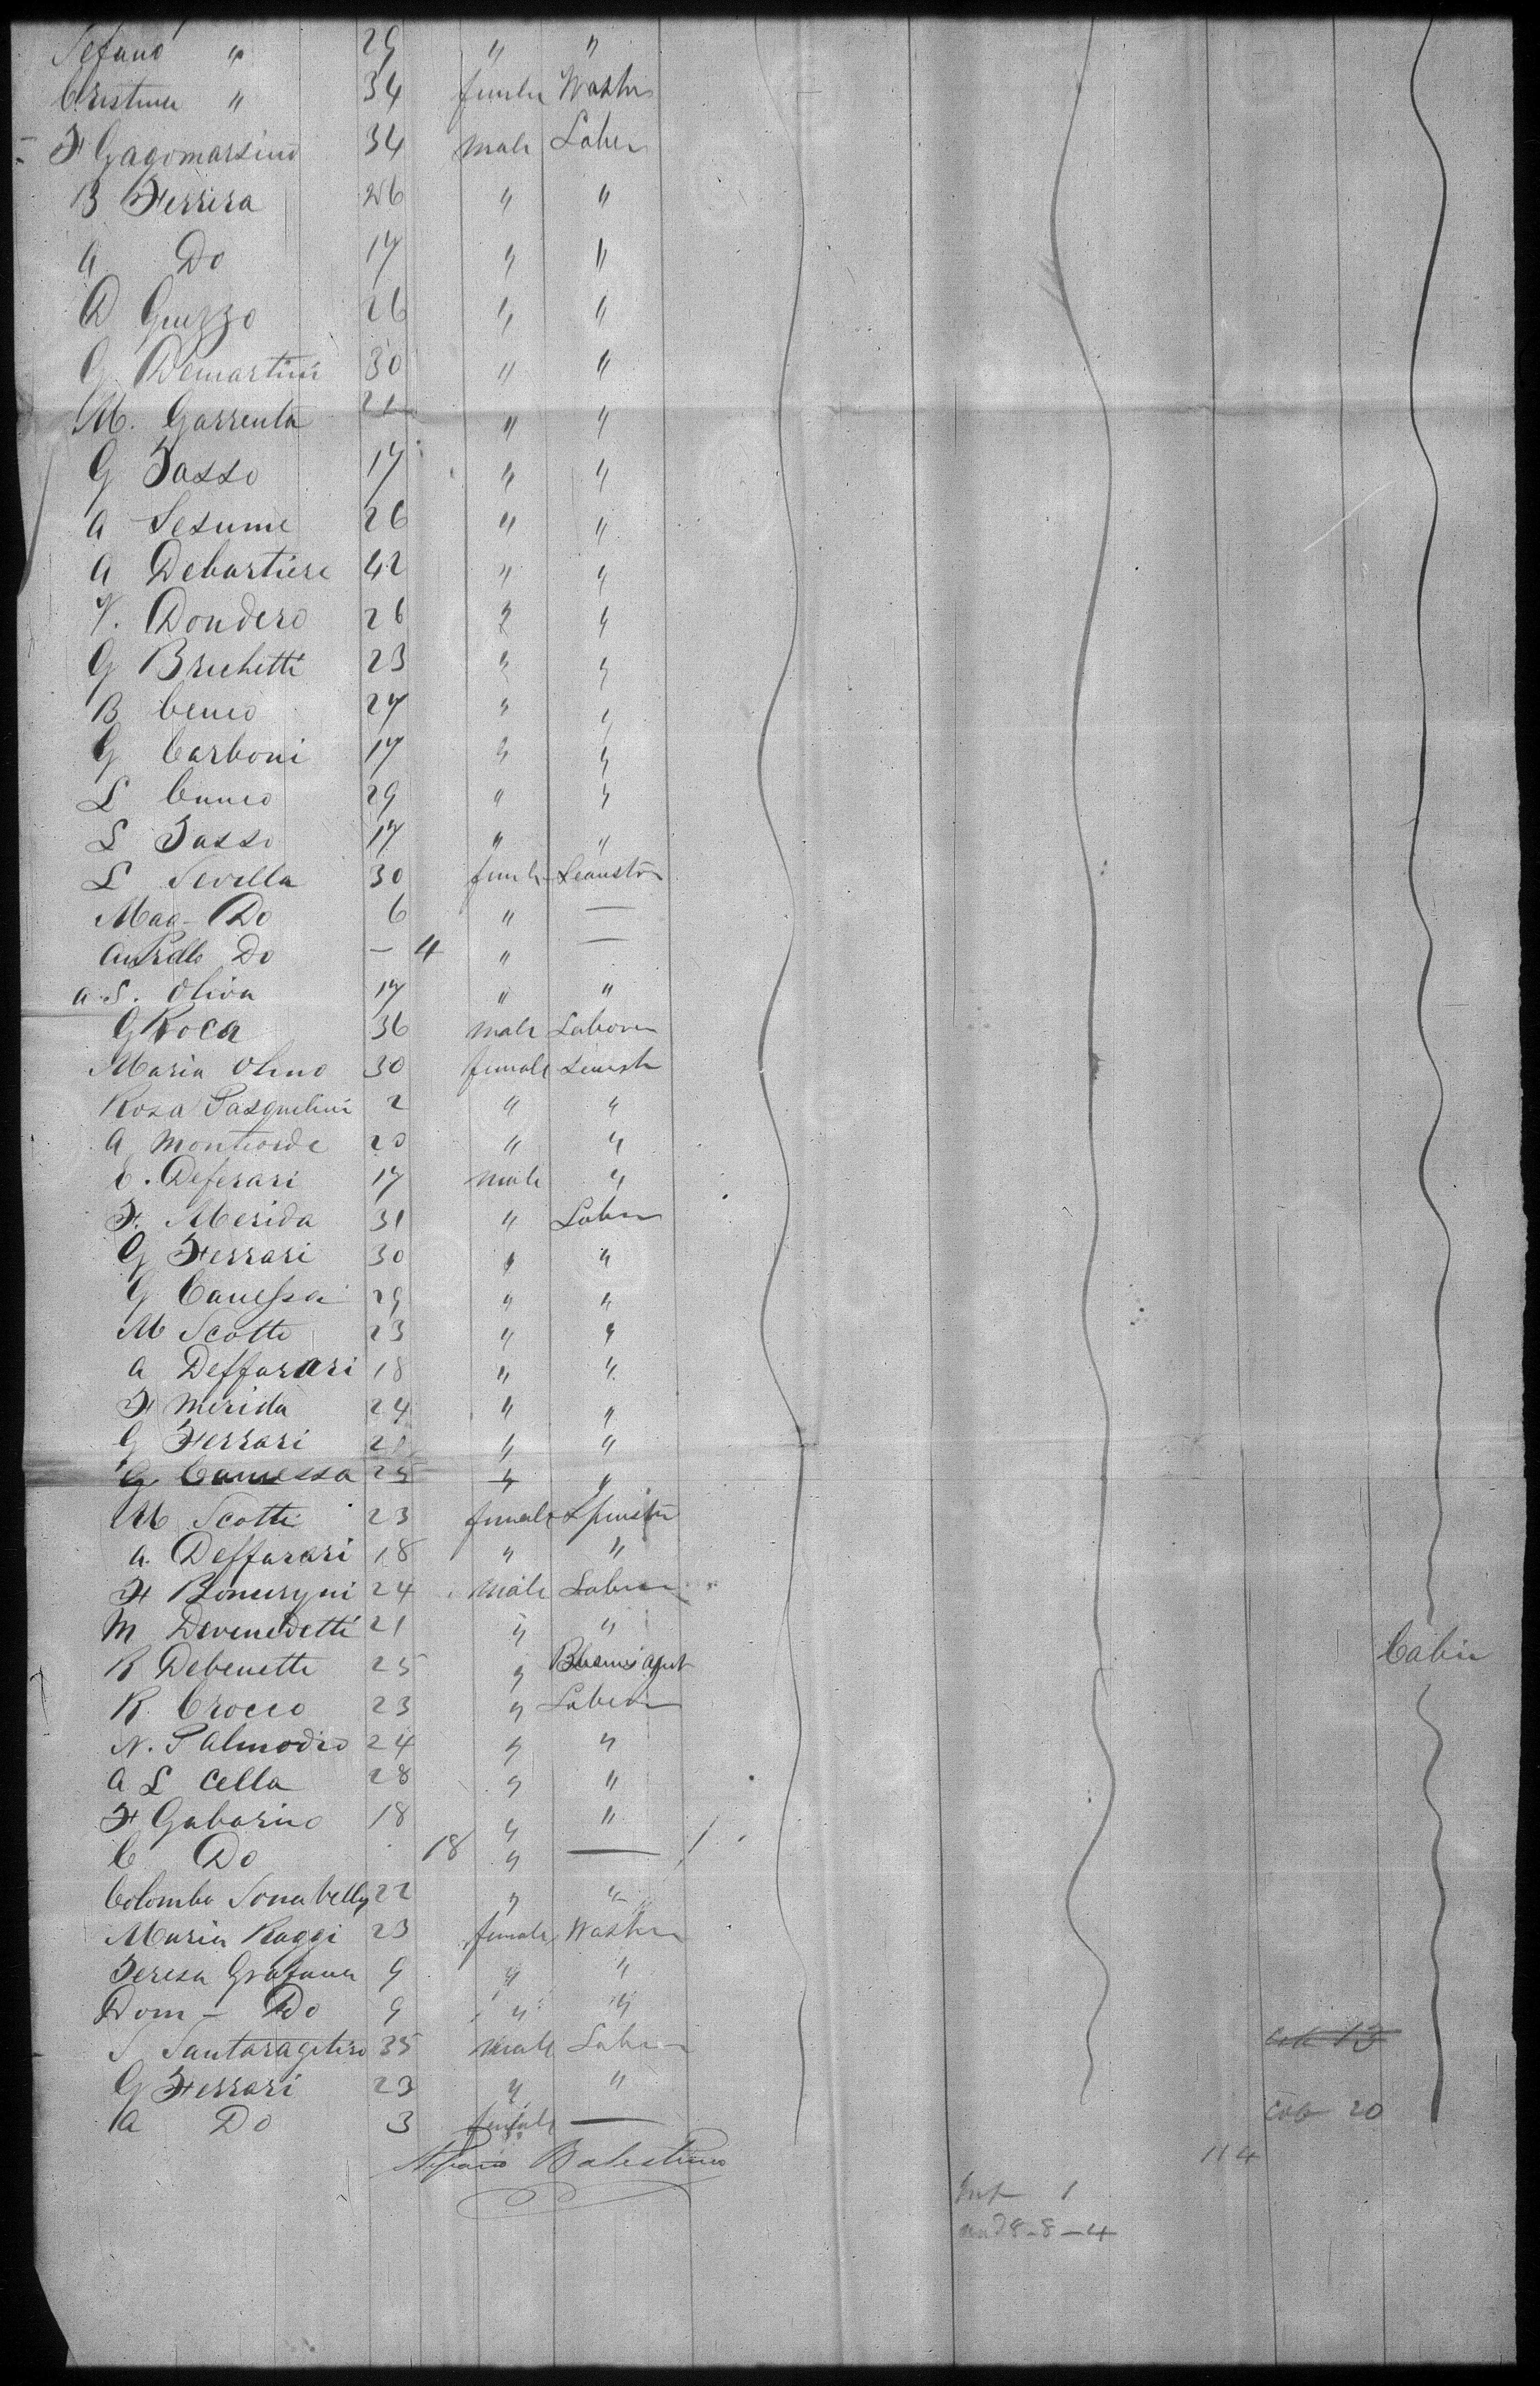 Stefano " 29 " "
Cristina " 34 female Washer
F Gagomarsino 34 male Laber
B Ferrera 26 " "
A Do 17 " "
D Guzzo 26 " "
G Demartini 30 " "
M. Garrenta 21 " "
G Tasso 17 " "
A Sesume 26 " "
A Debartiere 42 " "
V. Dondero 26 " "
G Bruchetti 23 " "
B Cuneo 27 " "
G Carboni 17 " "
L Cuneo 29 " "
L Tasso 17 " "
L Sevella 30 female
Mag- Do 6 " —
Do – 4 " —
A. S. Oliva 17 " "
G Roca 36 male Laborer
Maria Olino 30 female
Rosa Pasquelini 2 " "
A Monteorde 20 " "
E. Deferari 17 male "
F. Merida 31 " Laber
G Ferrari 30 " "
G Canessa 29 " "
M Scotti 23 " "
A Deffarari 18 " "
F Merida 24 " "
G Ferrari " "
G Canessa 25 " "
M Scotti 23 female Spinster
A. Deffarari 18 " "
F 24 male Laber
M Devenedetti 21 " "
R Debenetti 25 " Busines agent
R. Crocco 23 " Laber
N. Palmodio 24 " "
A L Cella 28 " "
F Gabarino 18 " "
C Do 18 " — 1
Colombo 22 " "
Maria Raggi 23 female Washer
Teresa Grafana 9 " "
Dom - Do 9 " "
S 35 male Laber
G Ferrari 23 " "
A Do 3 female —
Stefano Balestrino
Cabin
13
Cab 20
114
Inf 1
8-8-4